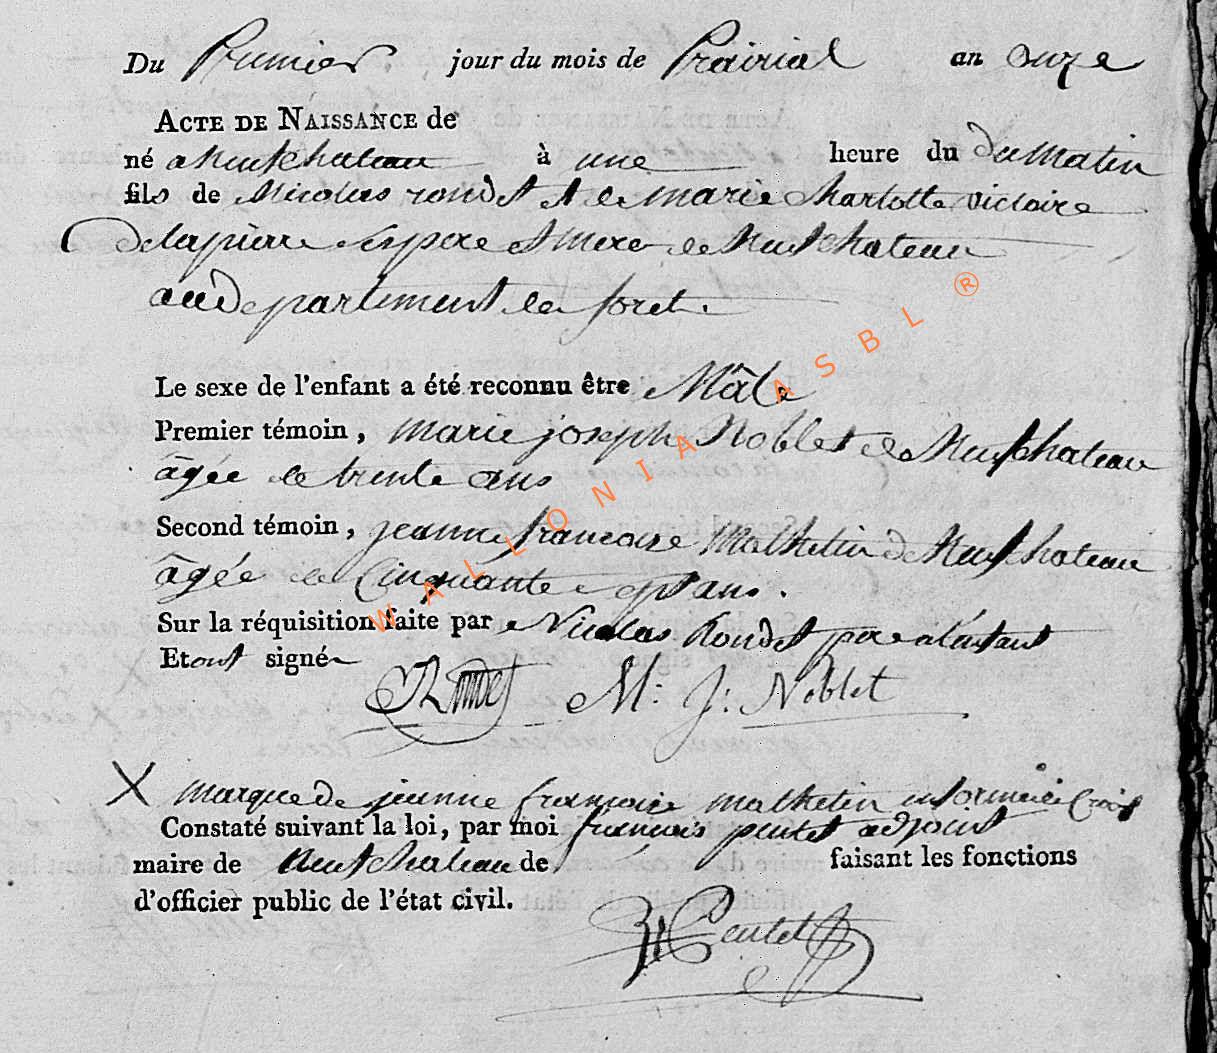 Du Premier jour du mois de Prairial an onze
ACTE DE NAISSANCE de
né a Neufchateau à une heure du du matin
fils de Nicolas rondet et de marie Charlotte victoire
Delapierre ses pere et mere de Neufchateau
au Departement de foret.
Le sexe de l'enfant a été reconnu être Mâle
Premier témoin, marie joseph Noblet de Neufchateau
âgée de trente ans
Second témoin, jeanne francoise Mathelin de Neufchateau
âgée de Cinquante sept ans.
Sur la réquisition faite par Nicolas Rondet pere a l'enfant
Et ont signé
Rondet M: J: Noblet
X marque de jeanne françoise mathelin en forme de Croix
Constaté suivant la loi, par moi françois adjoint
maire de Neufchateau de faisant les fonctions
d'officier public de l'état civil.
WALLONIA ASBL ®